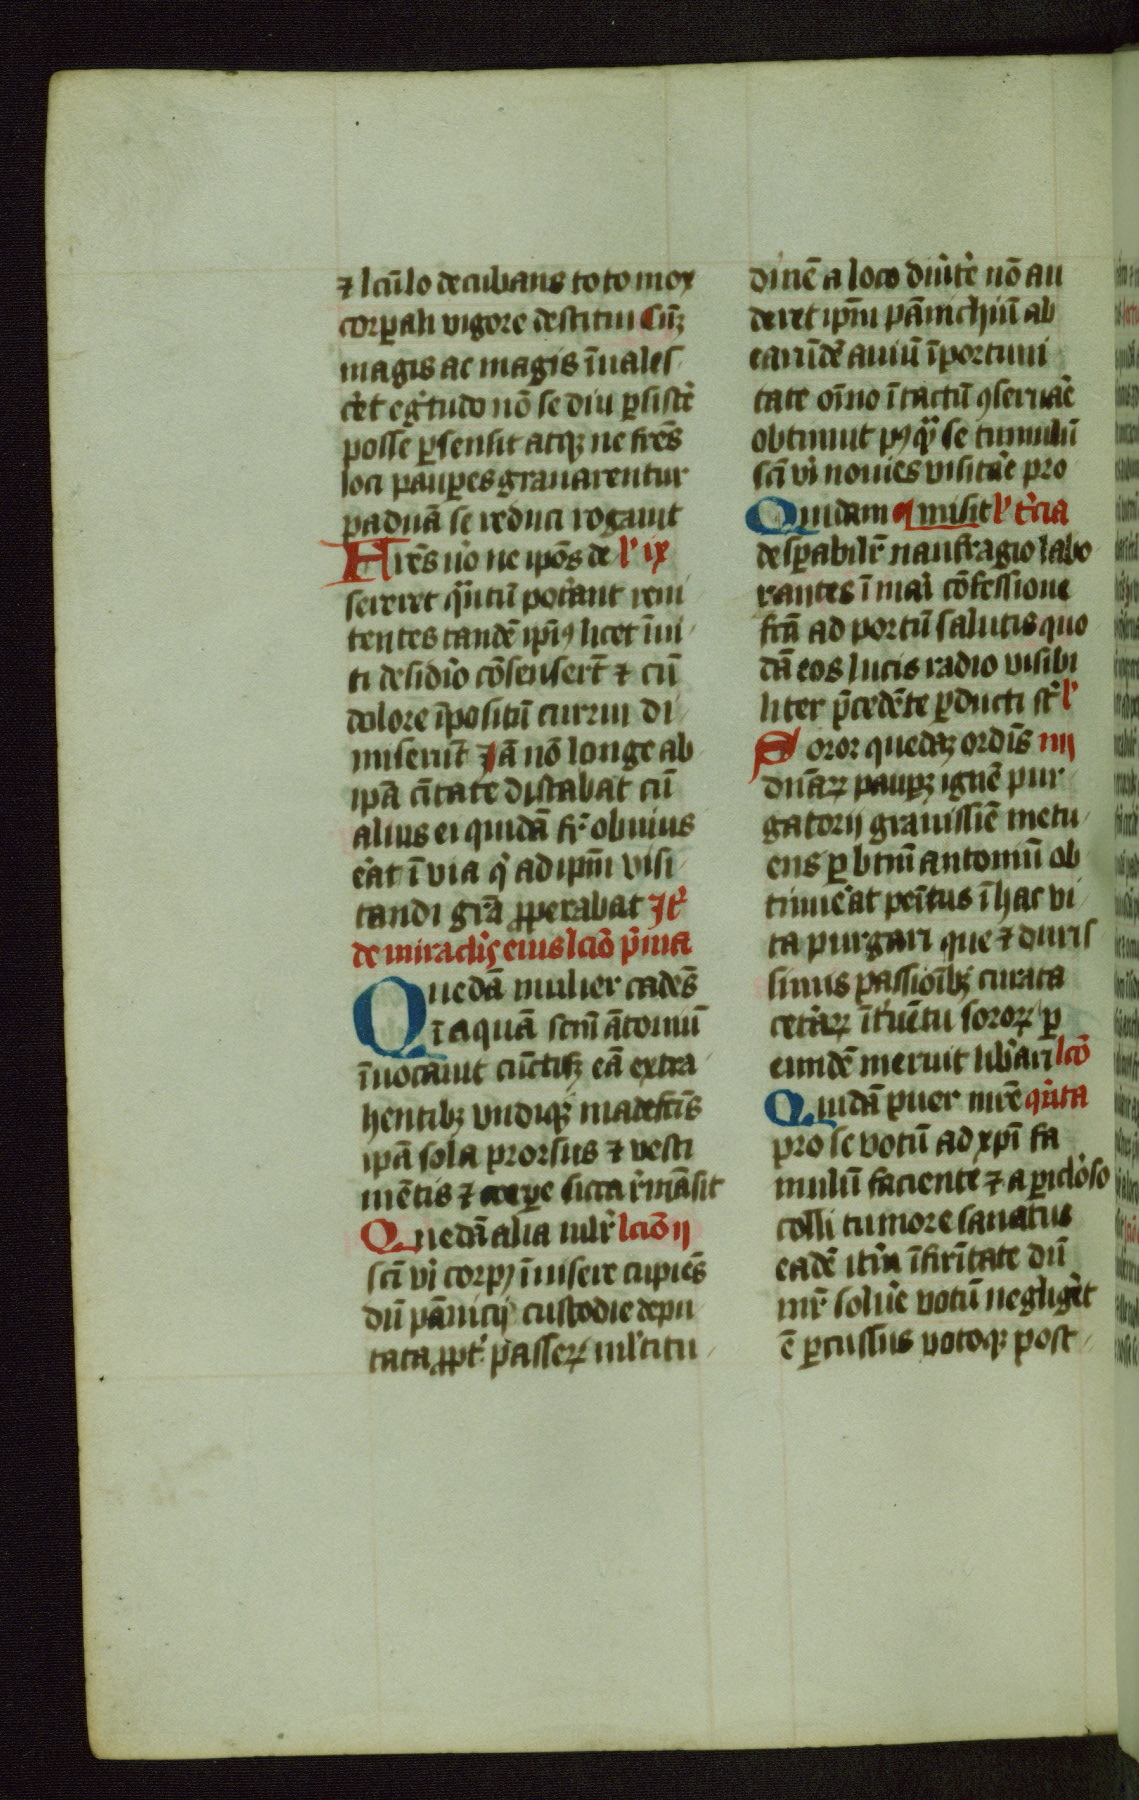 ⁊ lcūlo decubans toto mox
corꝑali vigore destitui Cūqꝫ
magis ac magis īuales
c̄et eg̾tudo nō se diu ꝑsist̾e
posse ꝑsensit atqꝫ ne frēs
loci pauꝑes grauarentur
paduā se reduci rogauit
Frēs u̾o ne ipōs de l̾ ix
sereret q̄ntū pot̾ant reni
tentes tandē ipī⁹ licet īui
ti desid̾io cōsenser̄t ⁊ cū
dolore īpositū currui di
miserūt Jā nō longe ab
ipā ciūtate distabat cū
alius ei quidā fr̄ obuius
e̾at ī via q̾ ad ipm̄ visi
tandi grā ꝓꝑerabat Jt̄
de miraclis eius lcīo p̾ma
Quedā mulier cadēs
ī aquā scm̄ ātoniū
īuocauit cūctisqꝫ eā extra
hentibꝫ vndiqꝫ madefcīs
ipā sola prorsus ⁊ vesti
mētis ⁊ corꝑe sicca r̾māsit
Quedā alia mlr̄ lcīo ij
scī vi̾ corp⁹ īuisere cupiēs
dū pānicij custodie depu
tata ꝓpt̾ passeꝝ ml̾titu
dinē a loco diu̾te̾ nō au
deret ipm̄ pānichiū ab
earūdē auiū īportuni
tate oīno ītactū ꝯseruāe
obtinuit p⁹q̄ se tumulū
scī vi̾ nouies visitāe pro
Quidam misit l̾ t̾cia
desꝑabilr̄ naufragio labo
rantes ī mari cōfessione
fcā ad portū salutis quo
dā eos lucis radio visibi
liter p̄cedēte ꝑducti st̄ l̾
Soror quedāꝫ ordīs iiij
dn̄aꝝ pauꝑꝫ ignē pur
gatorij grauissīe metu
ens ꝑ btm̄ antoniū ob
tinue̾at penītus ī hac vi
ta purgari que ⁊ duris
simis passioībꝫ curata
cet̾aꝝ īt̾uētu soroꝝ ꝑ
eundē meruit lib̾ari lcō
Quidā puer mr̄e q̾rta
pro se votū ad xpī fa
mulū faciente ⁊ a ꝑiclōso
colli tumore sanatus
eadē it̾m īfirmitate dū
mr̄ solue̾ votū negliger̾t
ē ꝑcussus votoqꝫ post